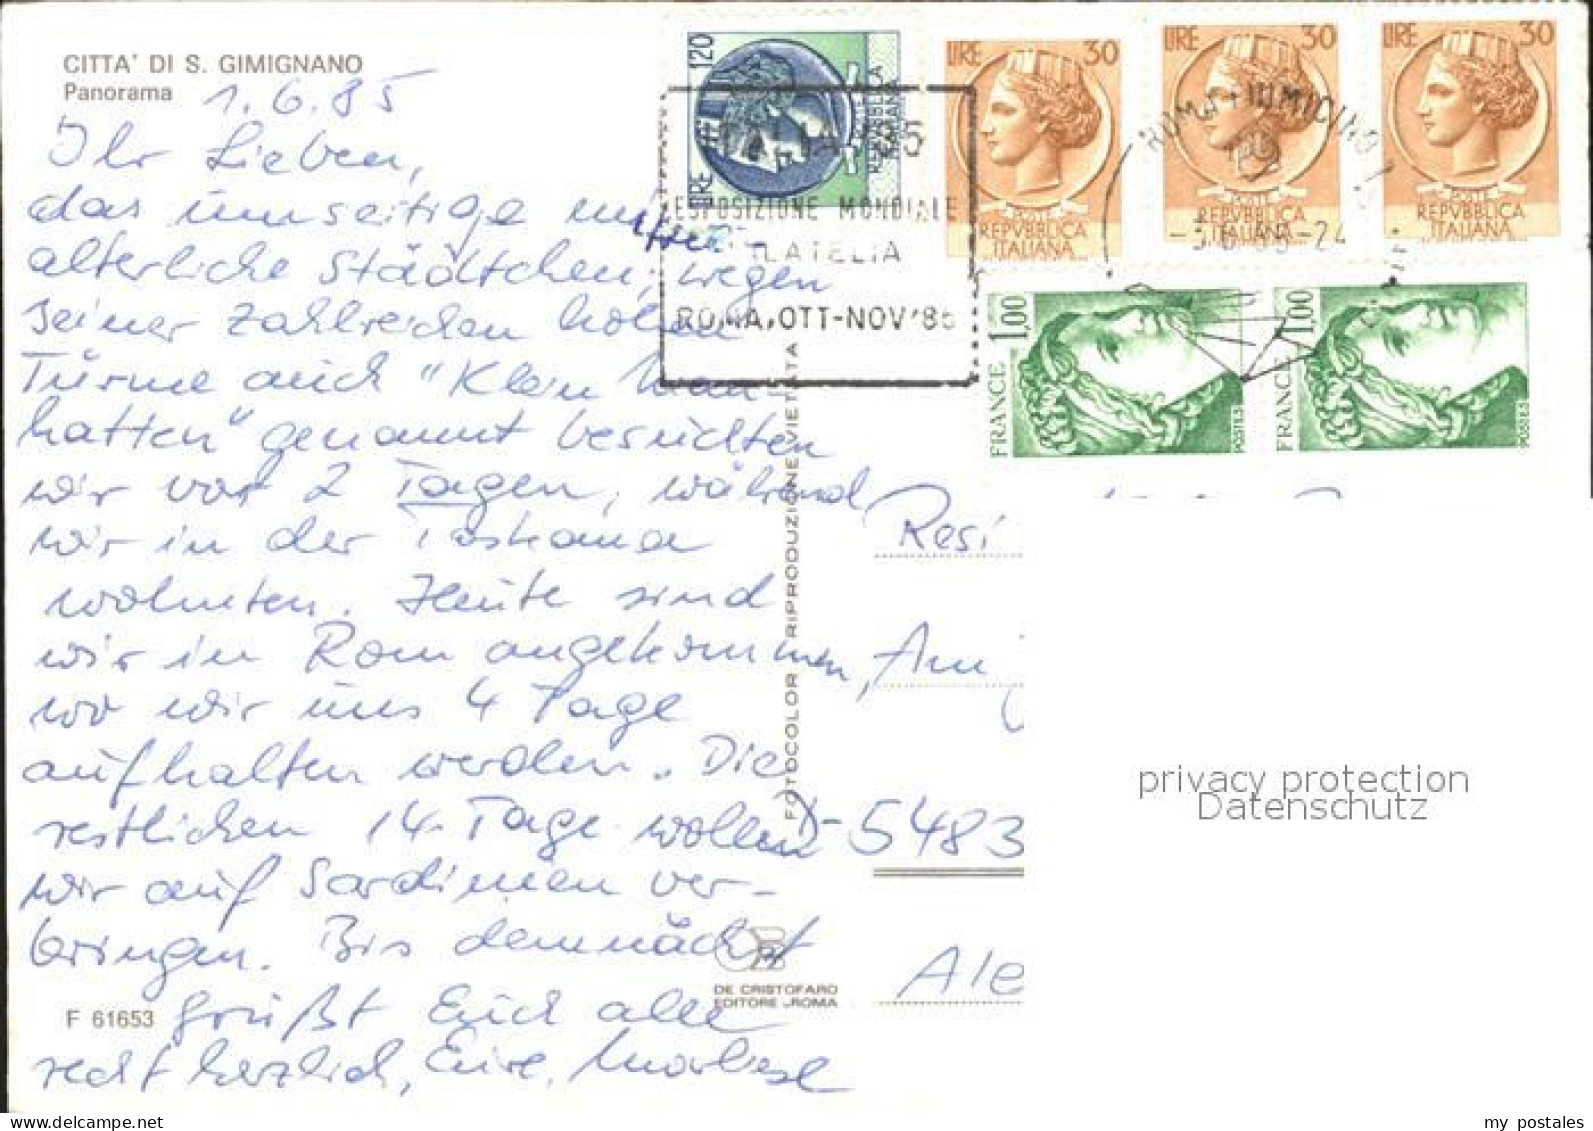 CITTA' DI S. GIMIGNANO
Panorama
1.6.85
Ihr Lieben,
das umseitige mittel-
alterliche Städtchen, wegen
seiner zahlreichen hohen
Türme auch "Klein Man-
hatten" genannt besuchten
wir vor 2 Tagen, während
wir in der Toskana
wohnten. Heute sind
wir in Rom angekommen,
wo wir uns 4 Tage
aufhalten werden. Die
restlichen 14 Tage wollen
wir auf Sardinien ver-
bringen. Bis demnächst
grüßt Euch alle
recht herzlich, Eure Marliese
F 61653
FOTOCOLOR RIPRODUZIONE VIETATA
DE CRISTOFARO
EDITORE - ROMA
LIRE 120
REPVBBLICA
ITALIANA
LIRE 30
POSTE
REPVBBLICA
ITALIANA
LIRE 30
POSTE
REPVBBLICA
ITALIANA
LIRE 30
POSTE
REPVBBLICA
ITALIANA
ITALIA '85
ESPOSIZIONE MONDIALE
FILATELIA
ROMA, OTT-NOV '85
ROMA FIUMICINO
-3 6 85-24
FRANCE 1,00
POSTES
FRANCE 1,00
POSTES
Resi
Am
D-5483
Ale
privacy protection
Datenschutz
my postales